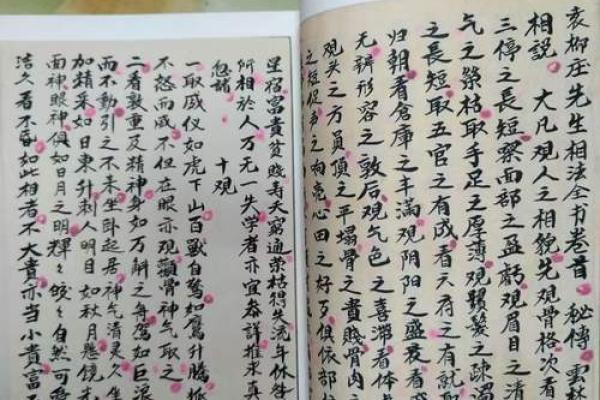 袁柳庄先生相法全书卷首 秘傳 雲林
相説 大凡观人之相貌先观骨格次看
三停之長短察面部之盈虧观眉目之清
气之荣枯取手足之厚薄观鬚髮之疏濁
之長短取五官之有成看六府之有就
归朝看倉庫之丰满观阴阳之盛衰看
无辨形容之敦后观气色之喜滞看体
观头之方員顶之平塌骨之貴賤骨肉之
之短促声之响亮心田之好歹俱依部位
星宿富貴貧賤寿夭窮通荣枯得失流年休咎
所相於人万无一失学者亦宜参詳推求真
忽諸 十观
一取威仪如虎下山百獸自驚如鷹升腾
不怒而威不但在眼亦观颧骨神气取之
二看敦重及精神身如万斛之舟駕如巨浪
而不動引之不来坐卧起居神气清灵久坐
加精采如日東升刺人明目如秋月懸镜
面神眼神俱如日月之明輝々皎々自然可爱
洁久看不昏如此相者不大貴亦当小貴富